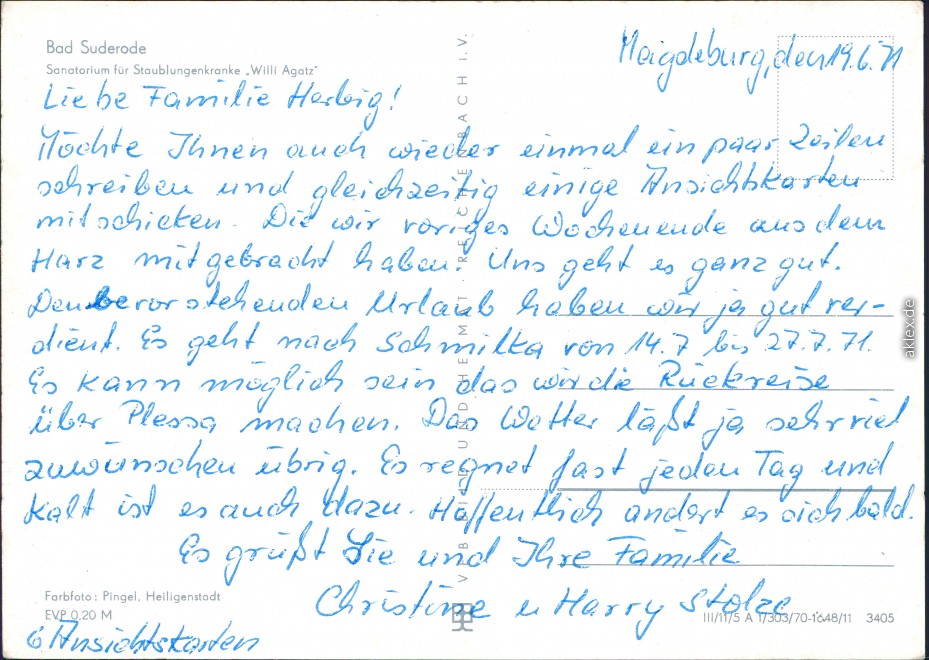 Bad Suderode
Sanatorium für Staublungenkranke „Willi Agatz"
Magdeburg, den 19.6.71
Liebe Familie Herbig!
Möchte Ihnen auch wieder einmal ein paar Zeilen
schreiben und gleichzeitig einige Ansichtskarten
mitschicken. Die wir voriges Wochenende aus dem
Harz mitgebracht haben. Uns geht es ganz gut.
Den bevorstehenden Urlaub haben wir ja gut ver-
dient. Es geht nach Schmilka von 14.7 bis 27.7.71.
Es kann möglich sein das wir die Rückreise
über Plessa machen. Das Wetter läßt ja sehr viel
zuwünschen übrig. Es regnet fast jeden Tag und
kalt ist es auch dazu. Hoffentlich andert es sich bald.
Es grüßt Sie und Ihre Familie
Christine u Harry Stolze
Farbfoto: Pingel, Heiligenstadt
EVP 0,20 M
III/11/5 A 1/303/70-1648/11 3405
6 Ansichtskarten
REICHENBACH I. V.
aklex.de